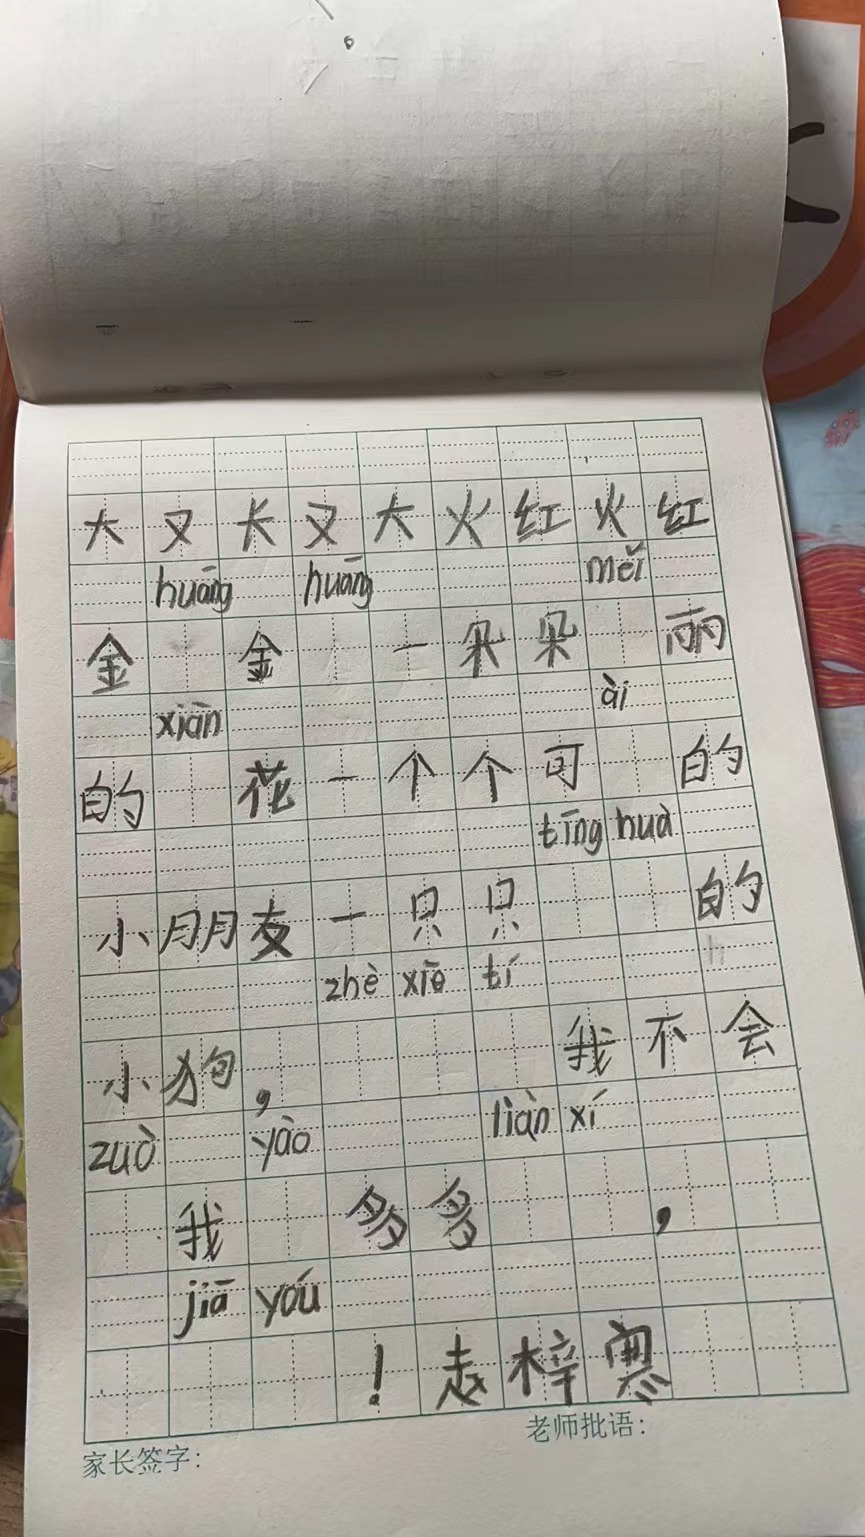 大又长又大火红火红
huāng huāng měi
金 金 一朵朵 丽
xiān ài
的 花一个个可 的
tīng huà
小朋友一只只 的
zhè xiē tí h
小狗, 我不会
zuò yào liàn xí
我 多多 ,
jiā yóu
! 赵梓寒
老师批语:
家长签字: